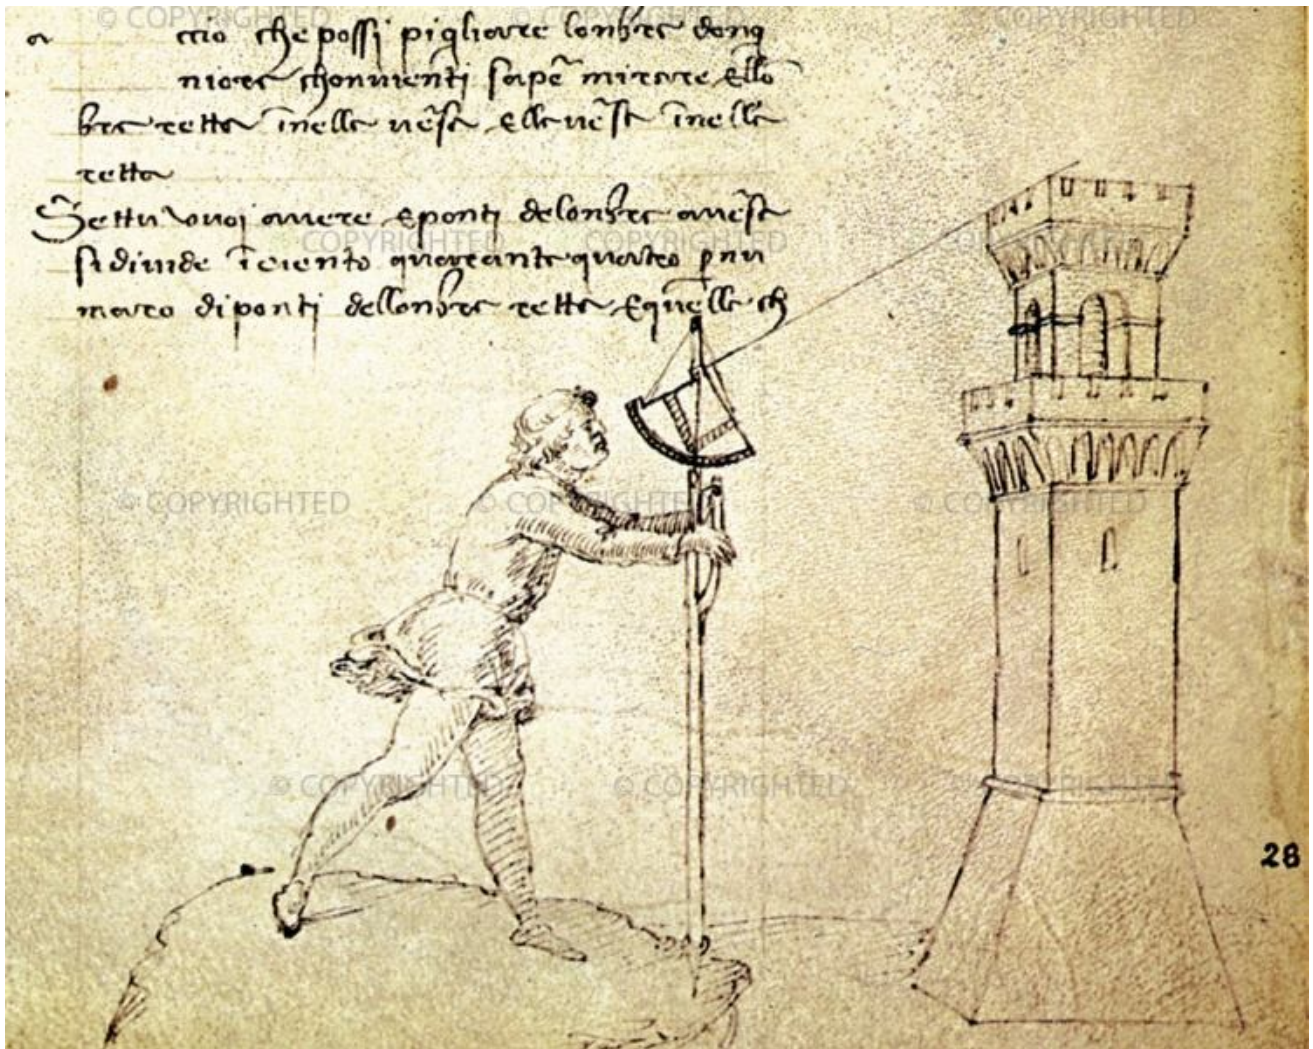 a ccio che possi pigliare lonbre conq
niare chonvienti sapē mirare ello
bra retta īnella vēsa ella vēsa īnella
retta
Settu vuoi avere eponti delonbra avēsa
sidivide īciento quarantaquatro p nu
maro diponti dellonbra retta equella ch
28
© COPYRIGHTED